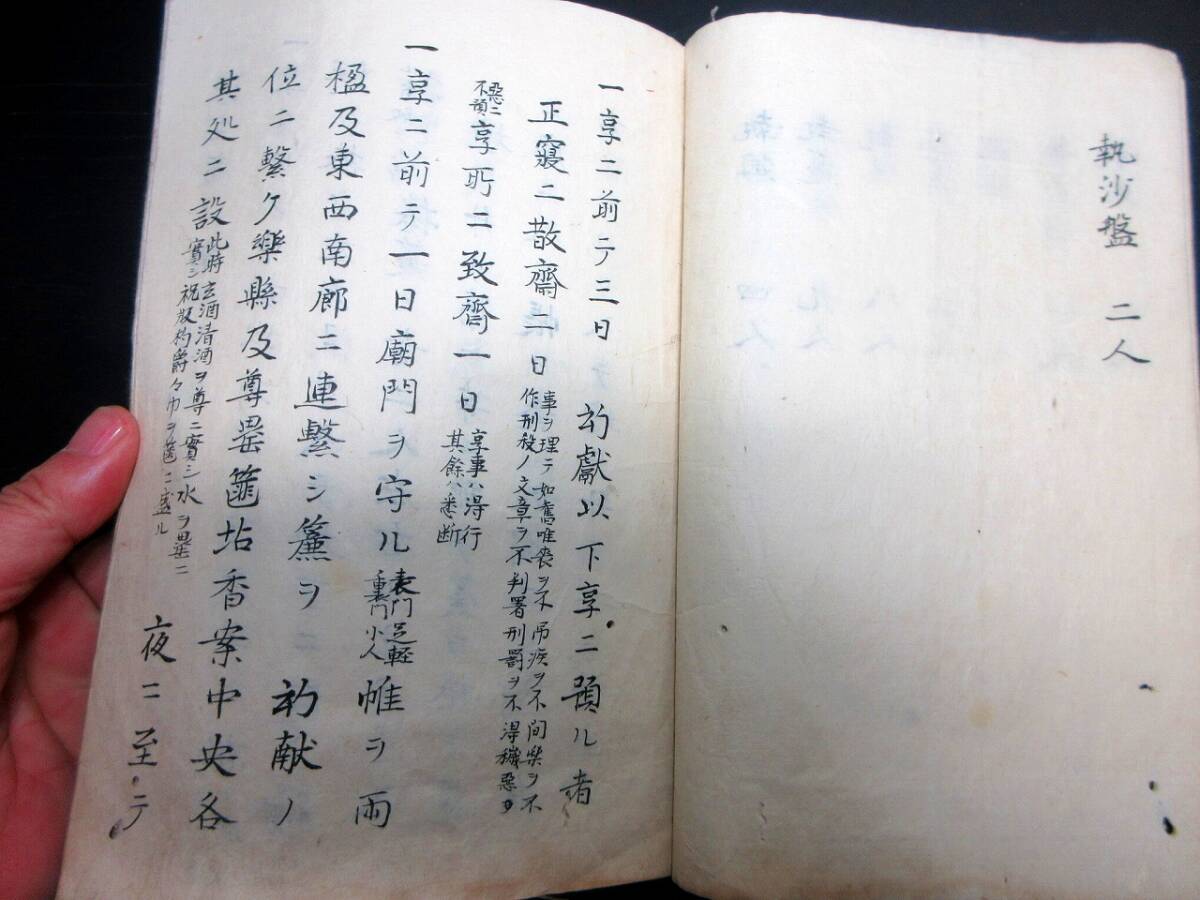 執沙盤 二人
一享ニ前テ三日 初獻以下享ニ預ル者
正寢ニ散齋二日 事ヲ理テ如舊唯喪ヲ不吊疾ヲ不問樂ヲ不
作刑殺ノ文章ヲ不判署刑罰ヲ不得穢惡ヲ
惡ニ
不預 享所ニ致齊一日 享事ハ得行
其餘ハ悉断
一享ニ前テ一日廟門ヲ守ル 表門足軽
裏門小人 帷ヲ両
楹及東西南廊ニ連繫シ簾ヲ 初献ノ
位ニ繫ク樂縣及尊罍篚坫香案中央各
其処ニ設 此時玄酒清酒ヲ尊ニ實シ水ヲ罍ニ
實シ祝版杓爵々巾ヲ篚ニ盛ル
夜ニ至テ